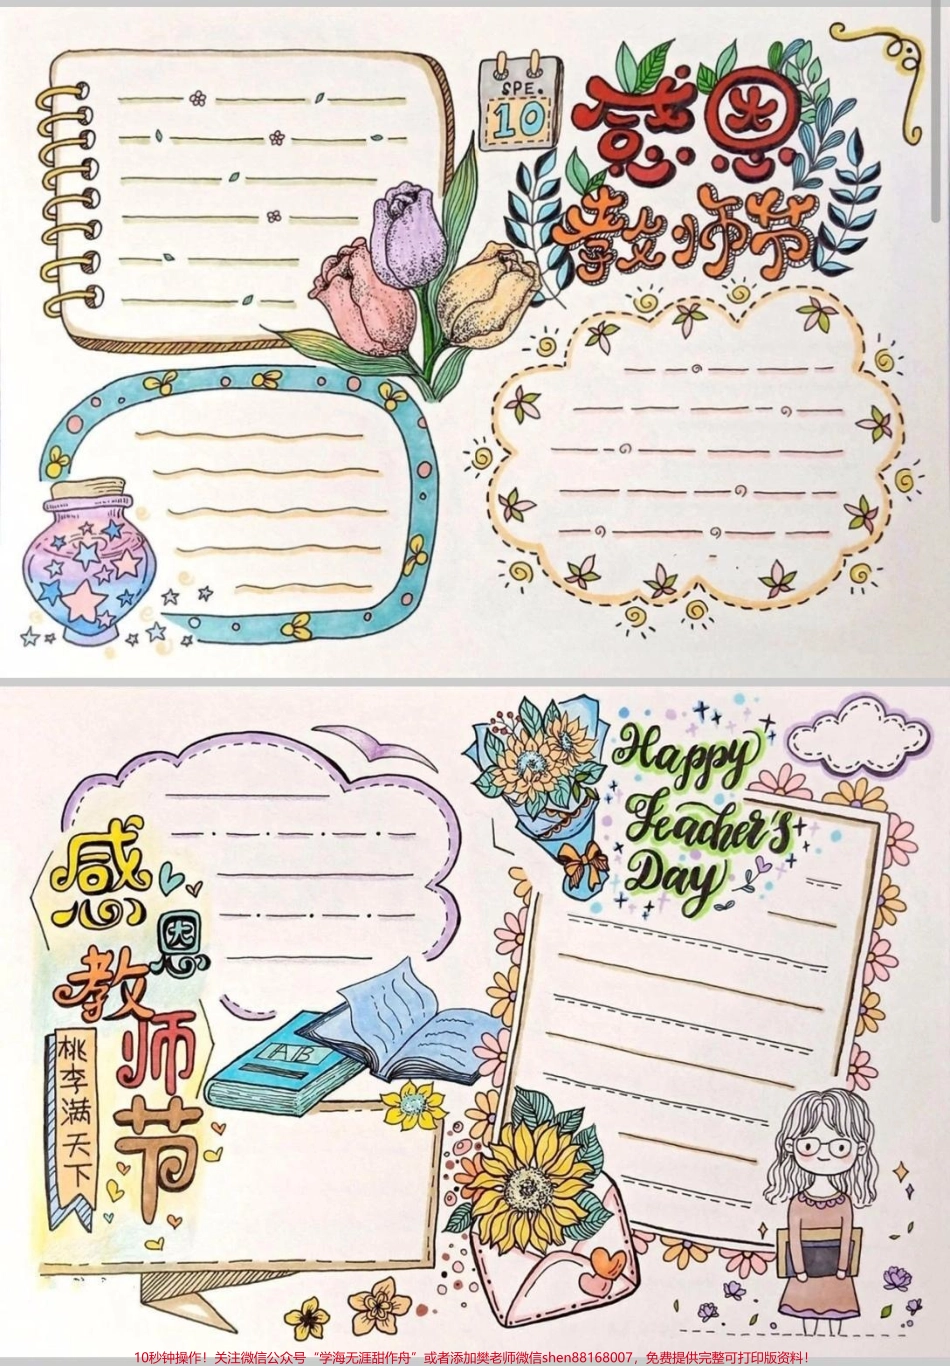 SPE.
10
感恩
教师节
感恩
教师节
桃李满天下
AB
Happy
Teacher's
Day
10秒钟操作！关注微信公众号“学海无涯甜作舟”或者添加樊老师微信shen88168007，免费提供完整可打印版资料！